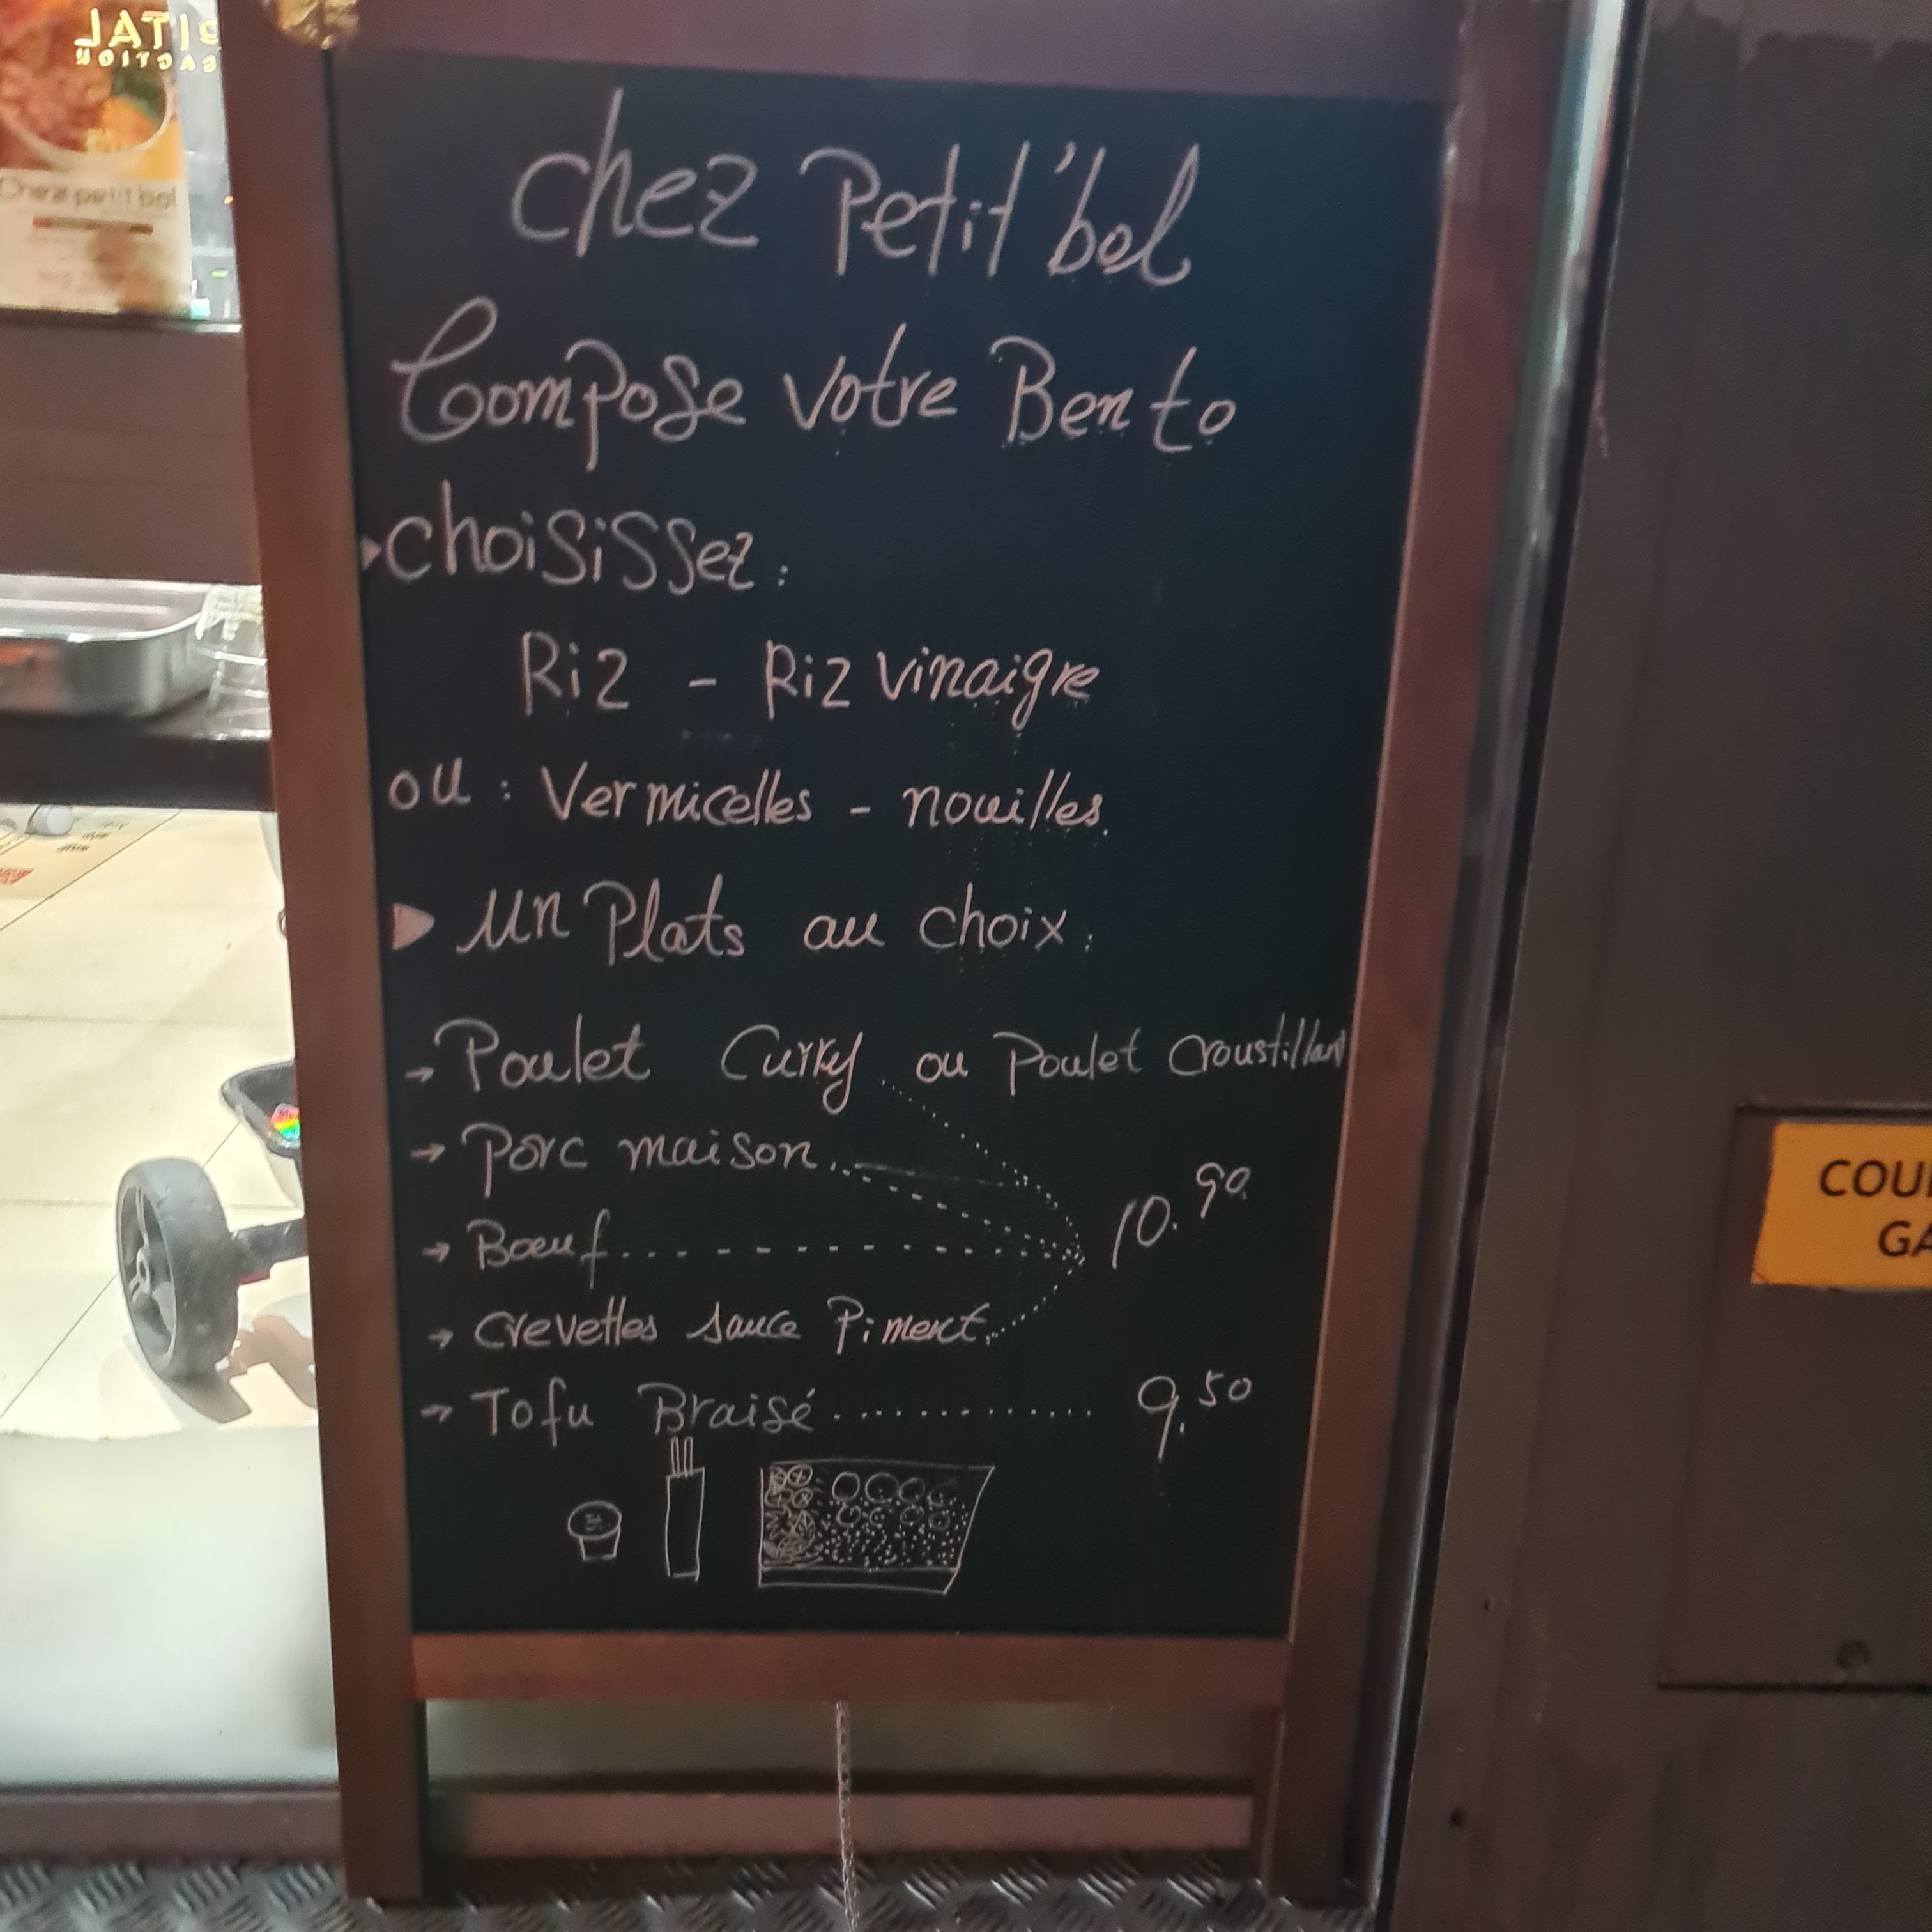 Chez petit bol
Chez Petit'bol
Compose votre Bento
Choisissez :
Riz - Riz vinaigre
ou : Vermicelles - nouilles.
Un Plats au choix :
→ Poulet Curry ou Poulet Croustillant
→ Porc maison
→ Bœuf 10.90
→ Crevettes sauce Piment
→ Tofu Braisé 9.50
COU
GA